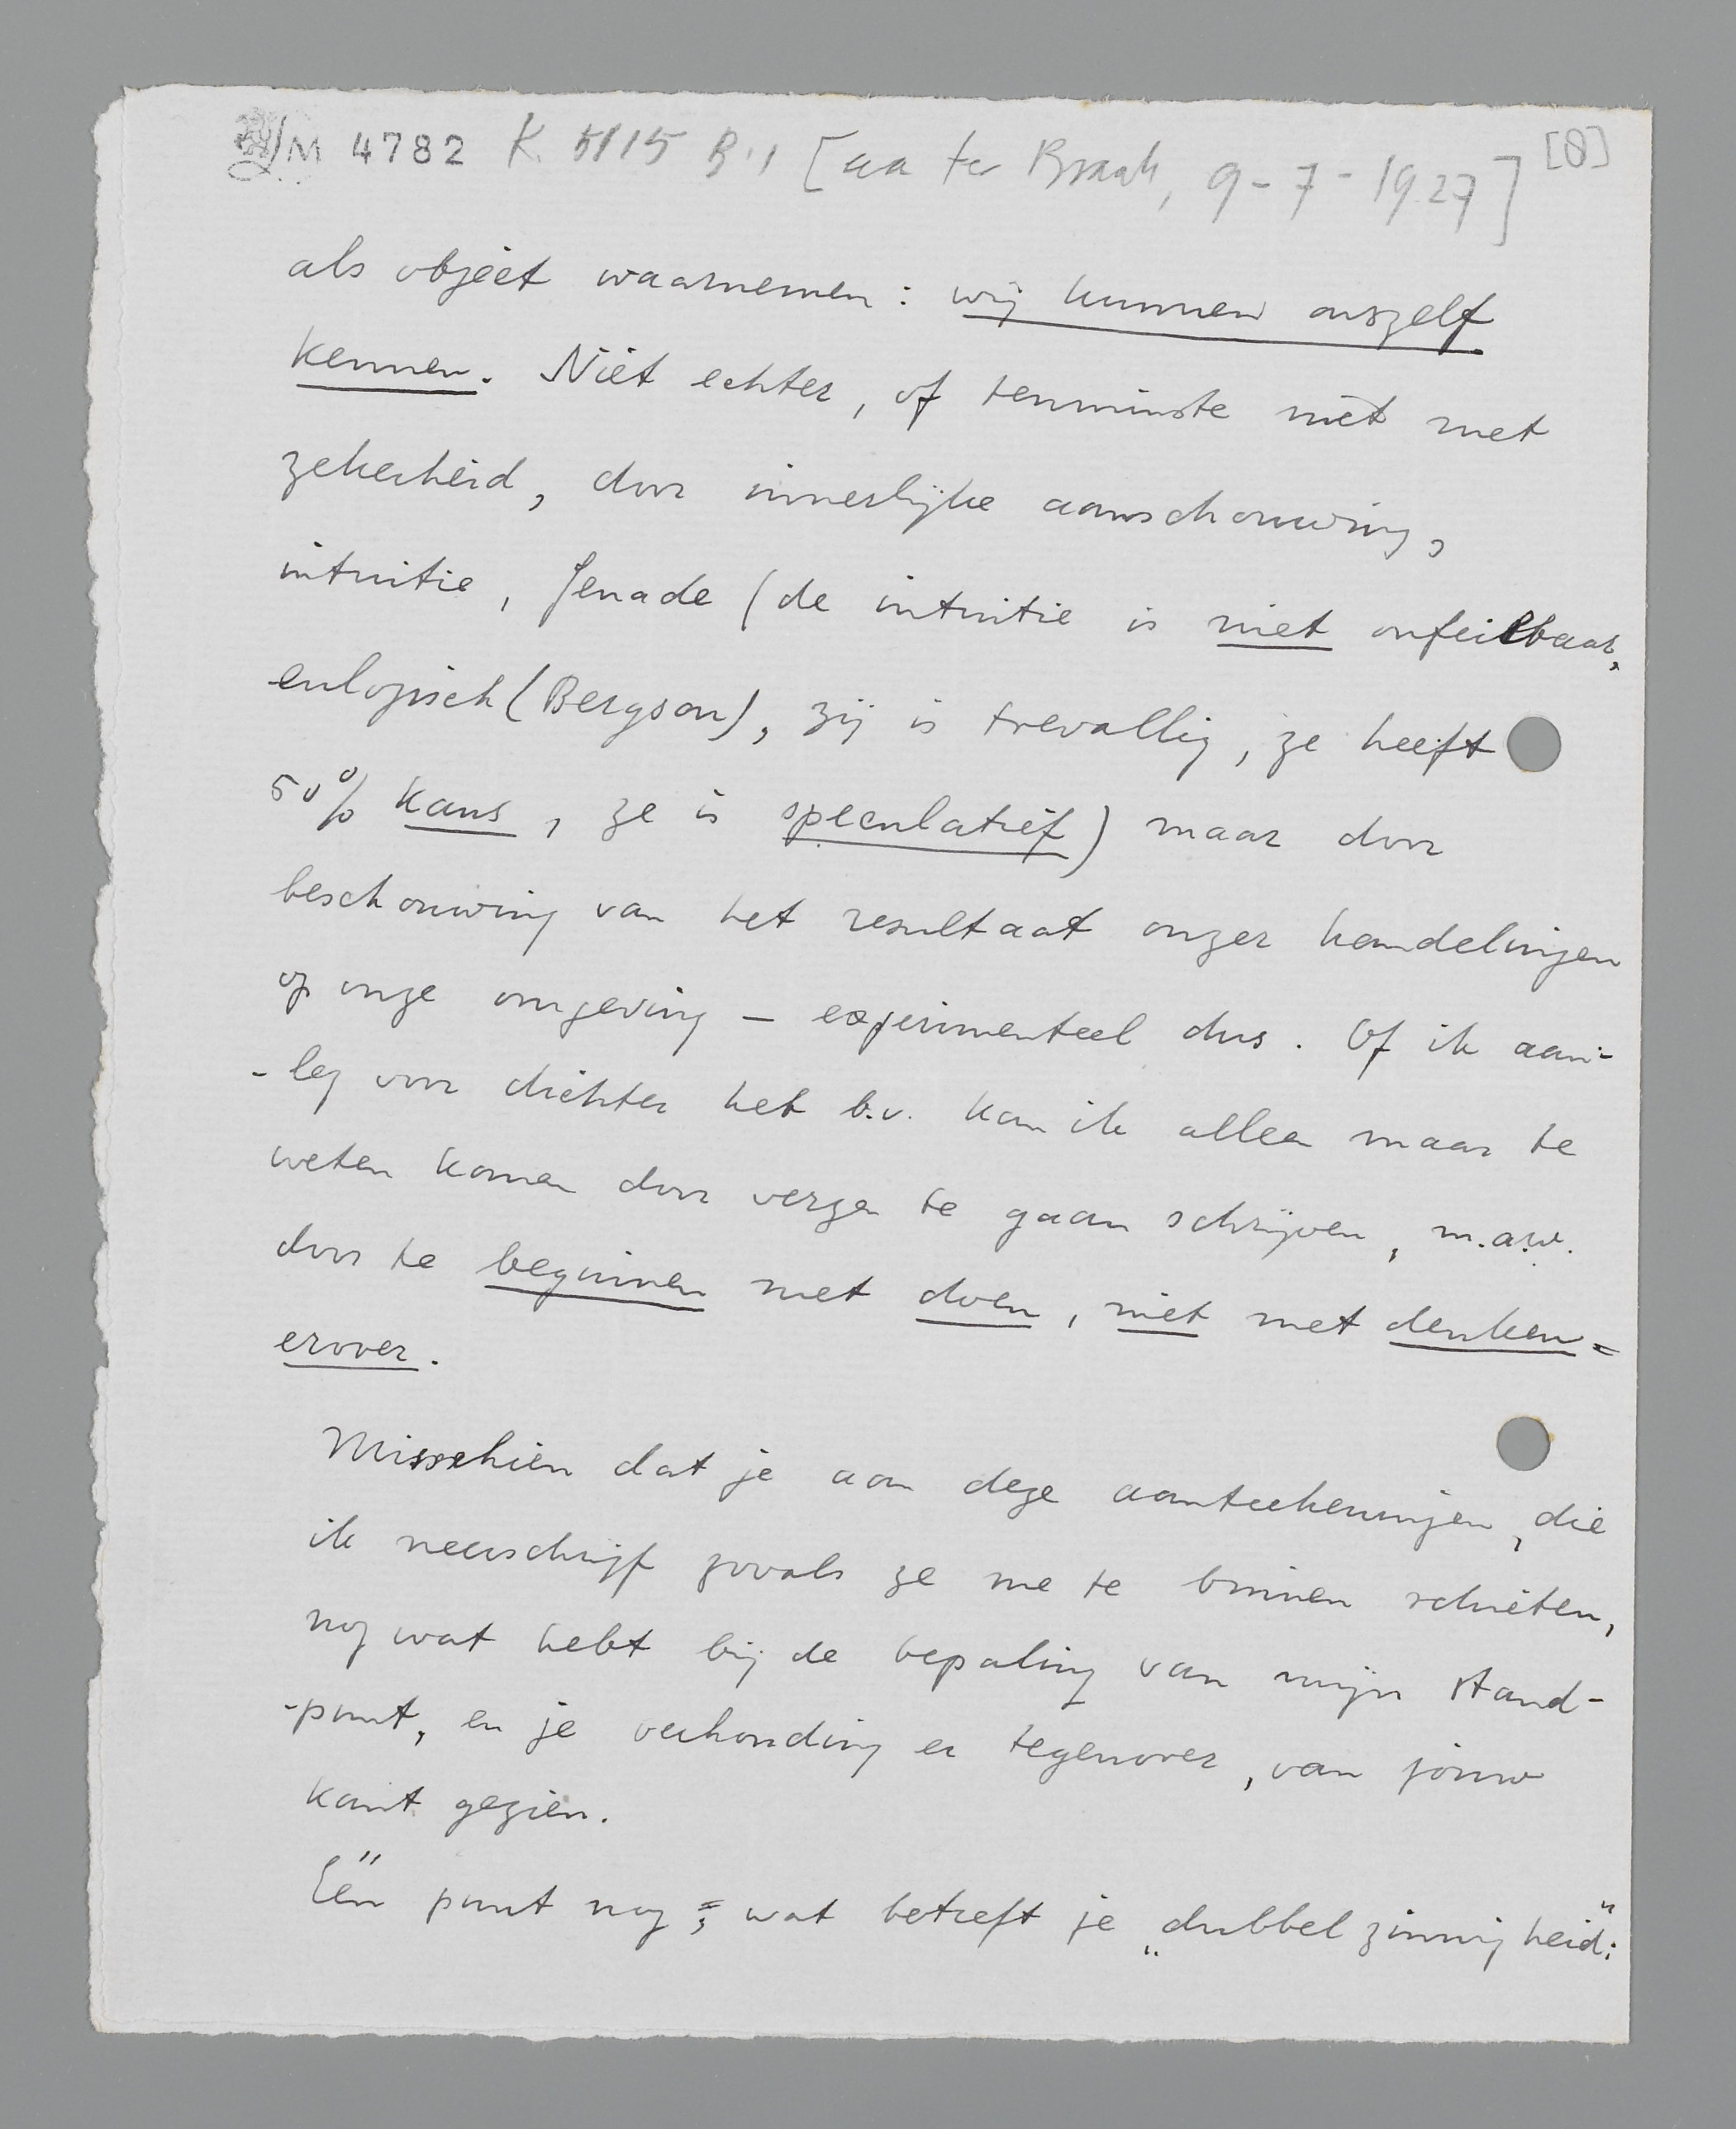 M 4782 K 5115 B:1 [aa ter Braak, 9-7-1927] [8]
als objéct waarnemen: wij kunnen onszelf
kennen. Niet echter, of tenminste niet met
zekerheid, door innerlijke aanschouwing,
intuitie, genade (de intuitie is niet onfeilbaar,
enlogisch (Bergson), zij is toevallig, ze heeft
50% kans, ze is speculatief) maar door
beschouwing van het resultaat onzer handelingen
op onze omgeving — experimenteel dus. Of ik aan-
-leg voor dichter heb b.v. kan ik alleen maar te
weten komen door verzen te gaan schrijven, m.a.w.
door te beginnen met doen, niet met denken=
erover.
Misschien dat je aan deze aanteekeningen, die
ik neerschrijf zooals ze me te binnen schieten,
nog wat hebt bij de bepaling van mijn stand-
-punt, en je verhouding er tegenover, van jouw
kant gezien.
Eén punt nog; wat betreft je „dubbelzinnigheid":